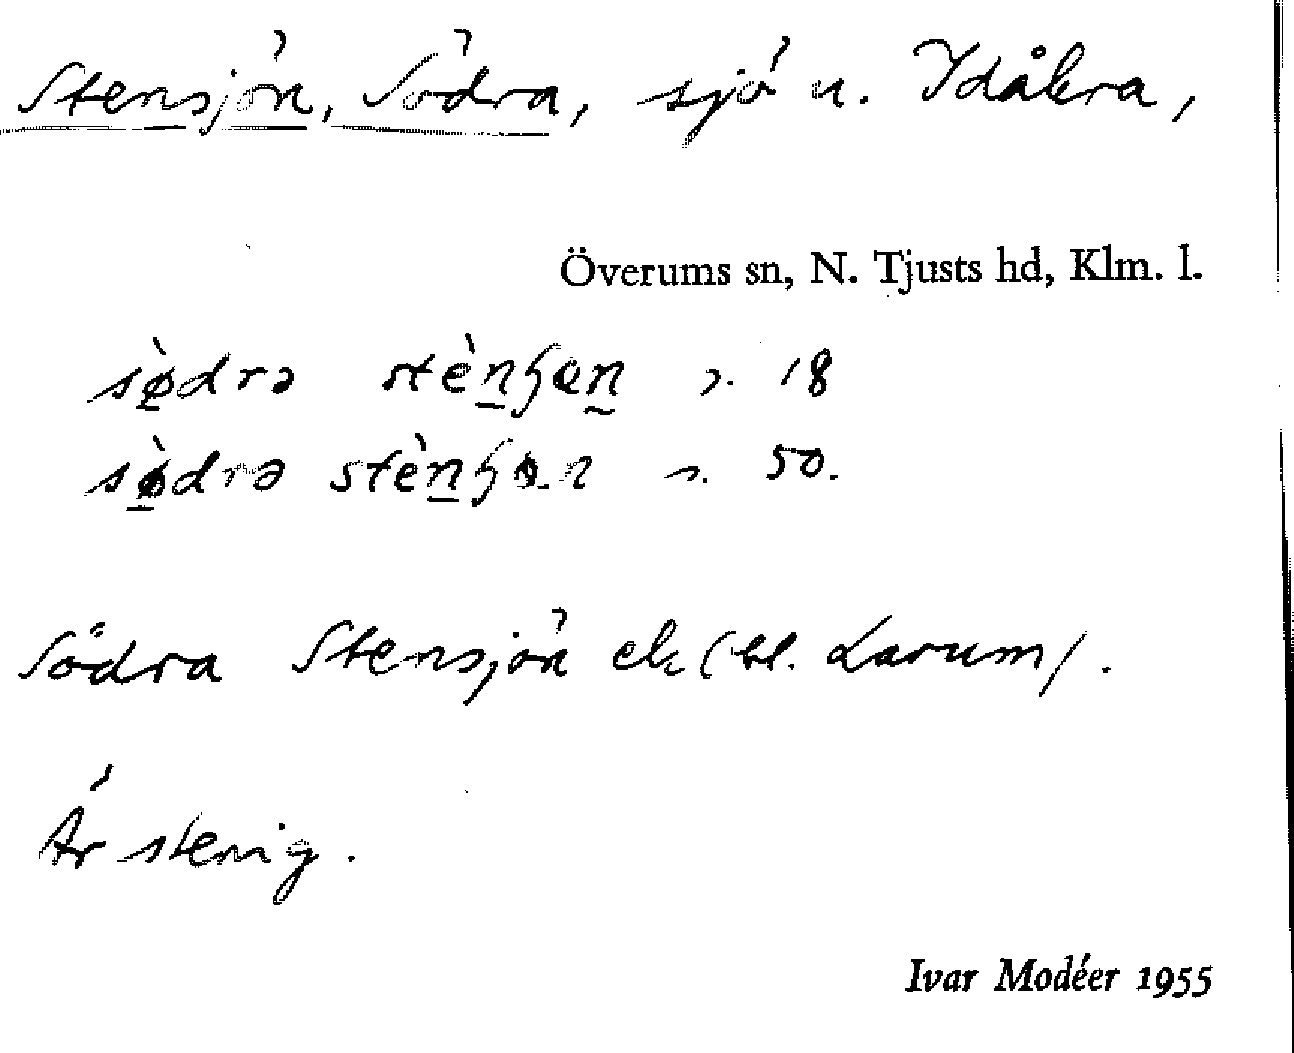 Stensjön, Södra, sjö u. Idåkra,
Överums sn, N. Tjusts hd, Klm. l.
sø̀drə stèn̲ɧøn̰ s. 18
sø̲̀drə stèn̲ɧøn s. 50.
Södra Stensjön ek (bl. Larum).
Är stenig.
Ivar Modéer 1955